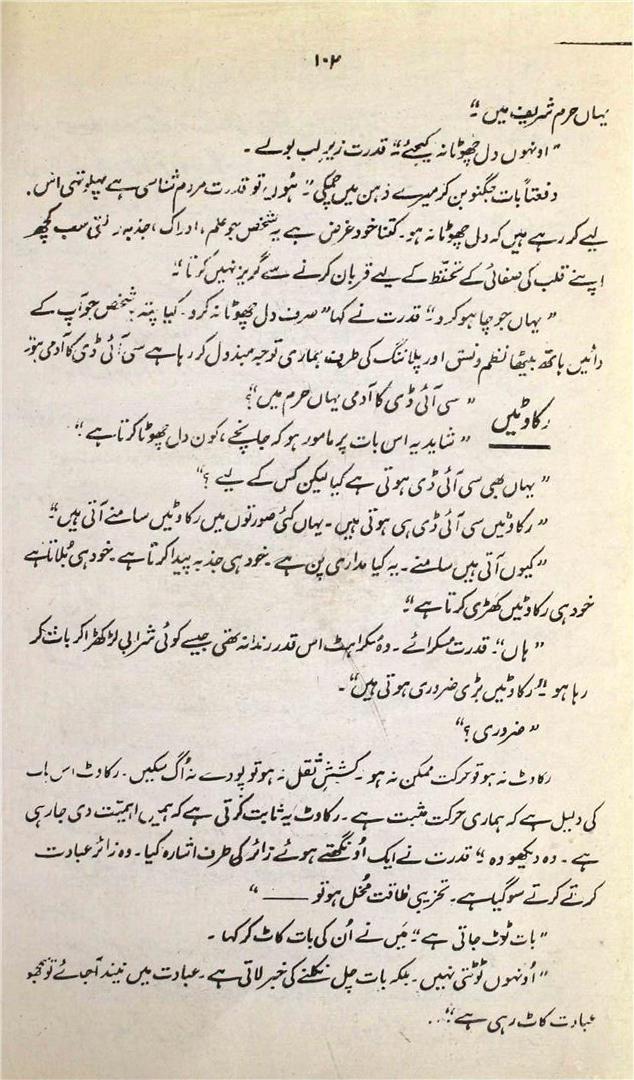 ۱۰۴
یہاں حرم شریف میں۔"
"اونہوں دل چھوٹا نہ کیجئے" قدرت زیرِ لب بولے۔
دفعتاً بات جگنو بن کر میرے ذہن میں چمکی۔ ہُوں، تو قدرت مردم شناسی سے پہلو تہی اس
لیے کر رہے ہیں کہ دل چھوٹا نہ ہو۔ کتنا خود غرض ہے یہ شخص جو علم، ادراک، جذبہ، سب کچھ
اپنے قلب کی صفائی کے تحفّظ کے لیے قربان کرنے سے گریز نہیں کرتا"
"یہاں جو چاہو کرو" قدرت نے کہا "صرف دل چھوٹا نہ کرو۔ کیا پتہ یہ شخص جو آپ کے
دائیں ہاتھ بیٹھا نظم و نسق اور پلاننگ کی طرف ہماری توجہ مبذول کر رہا ہے سی آئی ڈی کا آدمی ہو"
رکاوٹیں
"سی آئی ڈی کا آدمی یہاں حرم میں؟"
"شاید یہ اس بات پر مامور ہو کہ جانچے، کون دل چھوٹا کرتا ہے"۔
"یہاں بھی سی آئی ڈی ہوتی ہے کیا لیکن کس کے لیے؟"
"رکاوٹیں سی آئی ڈی ہی ہوتی ہیں۔ یہاں کئی صورتوں میں رکاوٹیں سامنے آتی ہیں"۔
"کیوں آتی ہیں سامنے۔ یہ کیا مداری پن ہے۔ خود ہی جذبہ پیدا کرتا ہے۔ خود ہی بُلاتا ہے
خود ہی رکاوٹیں کھڑی کرتا ہے"۔
"ہاں"۔ قدرت مسکرائے۔ وہ مسکراہٹ اس قدر رندانہ تھی جیسے کوئی شرابی لڑکھڑا کر بات کر
رہا ہو "رکاوٹیں بڑی ضروری ہوتی ہیں"۔
"ضروری؟"
رکاوٹ نہ ہو تو حرکت ممکن نہ ہو۔ کششِ ثقل نہ ہو تو پودے نہ اُگ سکیں۔ رکاوٹ اس بات
کی دلیل ہے کہ ہماری حرکت مثبت ہے۔ رکاوٹ یہ ثابت کرتی ہے کہ ہمیں اہمیّت دی جا رہی
ہے۔ وہ دیکھو وہ" قدرت نے ایک اُونگھتے ہوئے زائر کی طرف اشارہ کیا۔ وہ زائر عبادت
کرتے کرتے سو گیا ہے۔ تخریبی طاقت مُخل ہو تو ——— "
"بات ٹوٹ جاتی ہے" میں نے اُن کی بات کاٹ کر کہا۔
"اُونہوں ٹوٹتی نہیں۔ بلکہ بات چل نکلنے کی خبر لاتی ہے۔ عبادت میں نیند آ جائے تو سمجھو
عبادت کاٹ رہی ہے"..